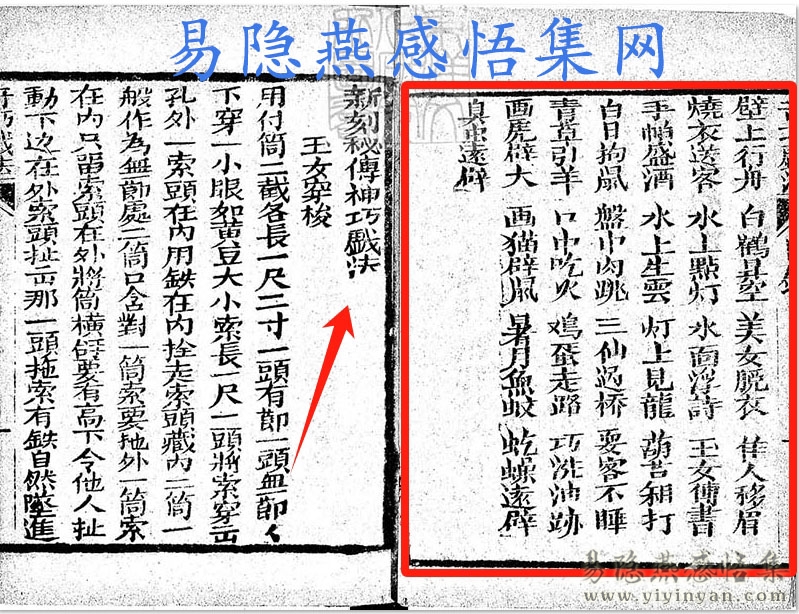 易隐燕感悟集网
壁上行舟 白鶴县空 美女脱衣 佳人移眉
燒衣送客 水上點灯 水面浮詩 玉女傳書
手帕盛酒 水上生雲 灯上見龍 葫芦相打
白日拘鼠 盤中肉跳 三仙过桥 耍客不睡
青草引羊 口中吃火 鸡蛋走路 巧洗油跡
画虎辟犬 画猫辟鼠 暑月魚蚊 虼蟆遠辟
臭虫遠辟
新刻秘傳神巧戲法
玉女穿梭
用竹筒二截各長一尺二寸一頭有節一頭無節
下穿一小眼如黄豆大小索長一尺一頭將索穿出
孔外一索頭在内用鉄在内拴走索頭藏内二筒一
般作為無節處二筒口合對一筒索要拖外一筒索
在内只單索頭在外將筒横要有高下令他人扯
動下边在外索頭扯出那一頭拖索有鉄自然墜進
奇巧戲法
易隐燕感悟集
www.yiyinyan.com